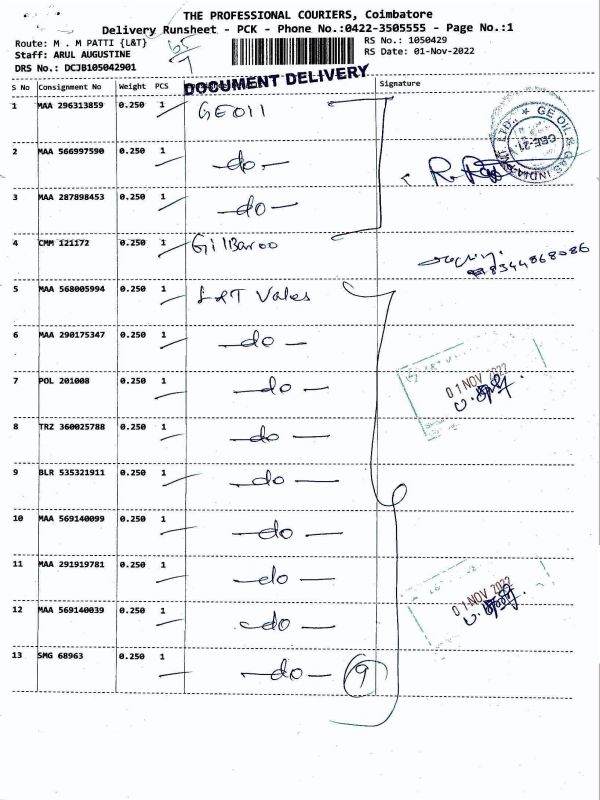 THE PROFESSIONAL COURIERS, Coimbatore
Delivery Runsheet - PCK - Phone No.:0422-3505555 - Page No.:1
Route: M . M PATTI {L&T}
RS No.: 1050429
Staff: ARUL AUGUSTINE
RS Date: 01-Nov-2022
DRS No.: DCJB105042901
65
7
DOCUMENT DELIVERY
S No Consignment No Weight PCS Signature
1 MAA 296313859 0.250 1 GEOIl
2 MAA 566997590 0.250 1 -do-
3 MAA 287898453 0.250 1 -do-
4 CMM 121172 0.250 1 GilBaroo
8344868086
5 MAA 568005994 0.250 1 L&T Vales
6 MAA 290175347 0.250 1 -do-
7 POL 201008 0.250 1 -do-
01 NOV 2022
8 TRZ 360025788 0.250 1 -do-
9 BLR 535321911 0.250 1 -do-
10 MAA 569140099 0.250 1 -do-
11 MAA 291919781 0.250 1 -do-
12 MAA 569140039 0.250 1 -do-
01 NOV 2022
13 SMG 68963 0.250 1 -do- 9
GE OIL & GAS INDIA PVT. LTD.
CBE-21